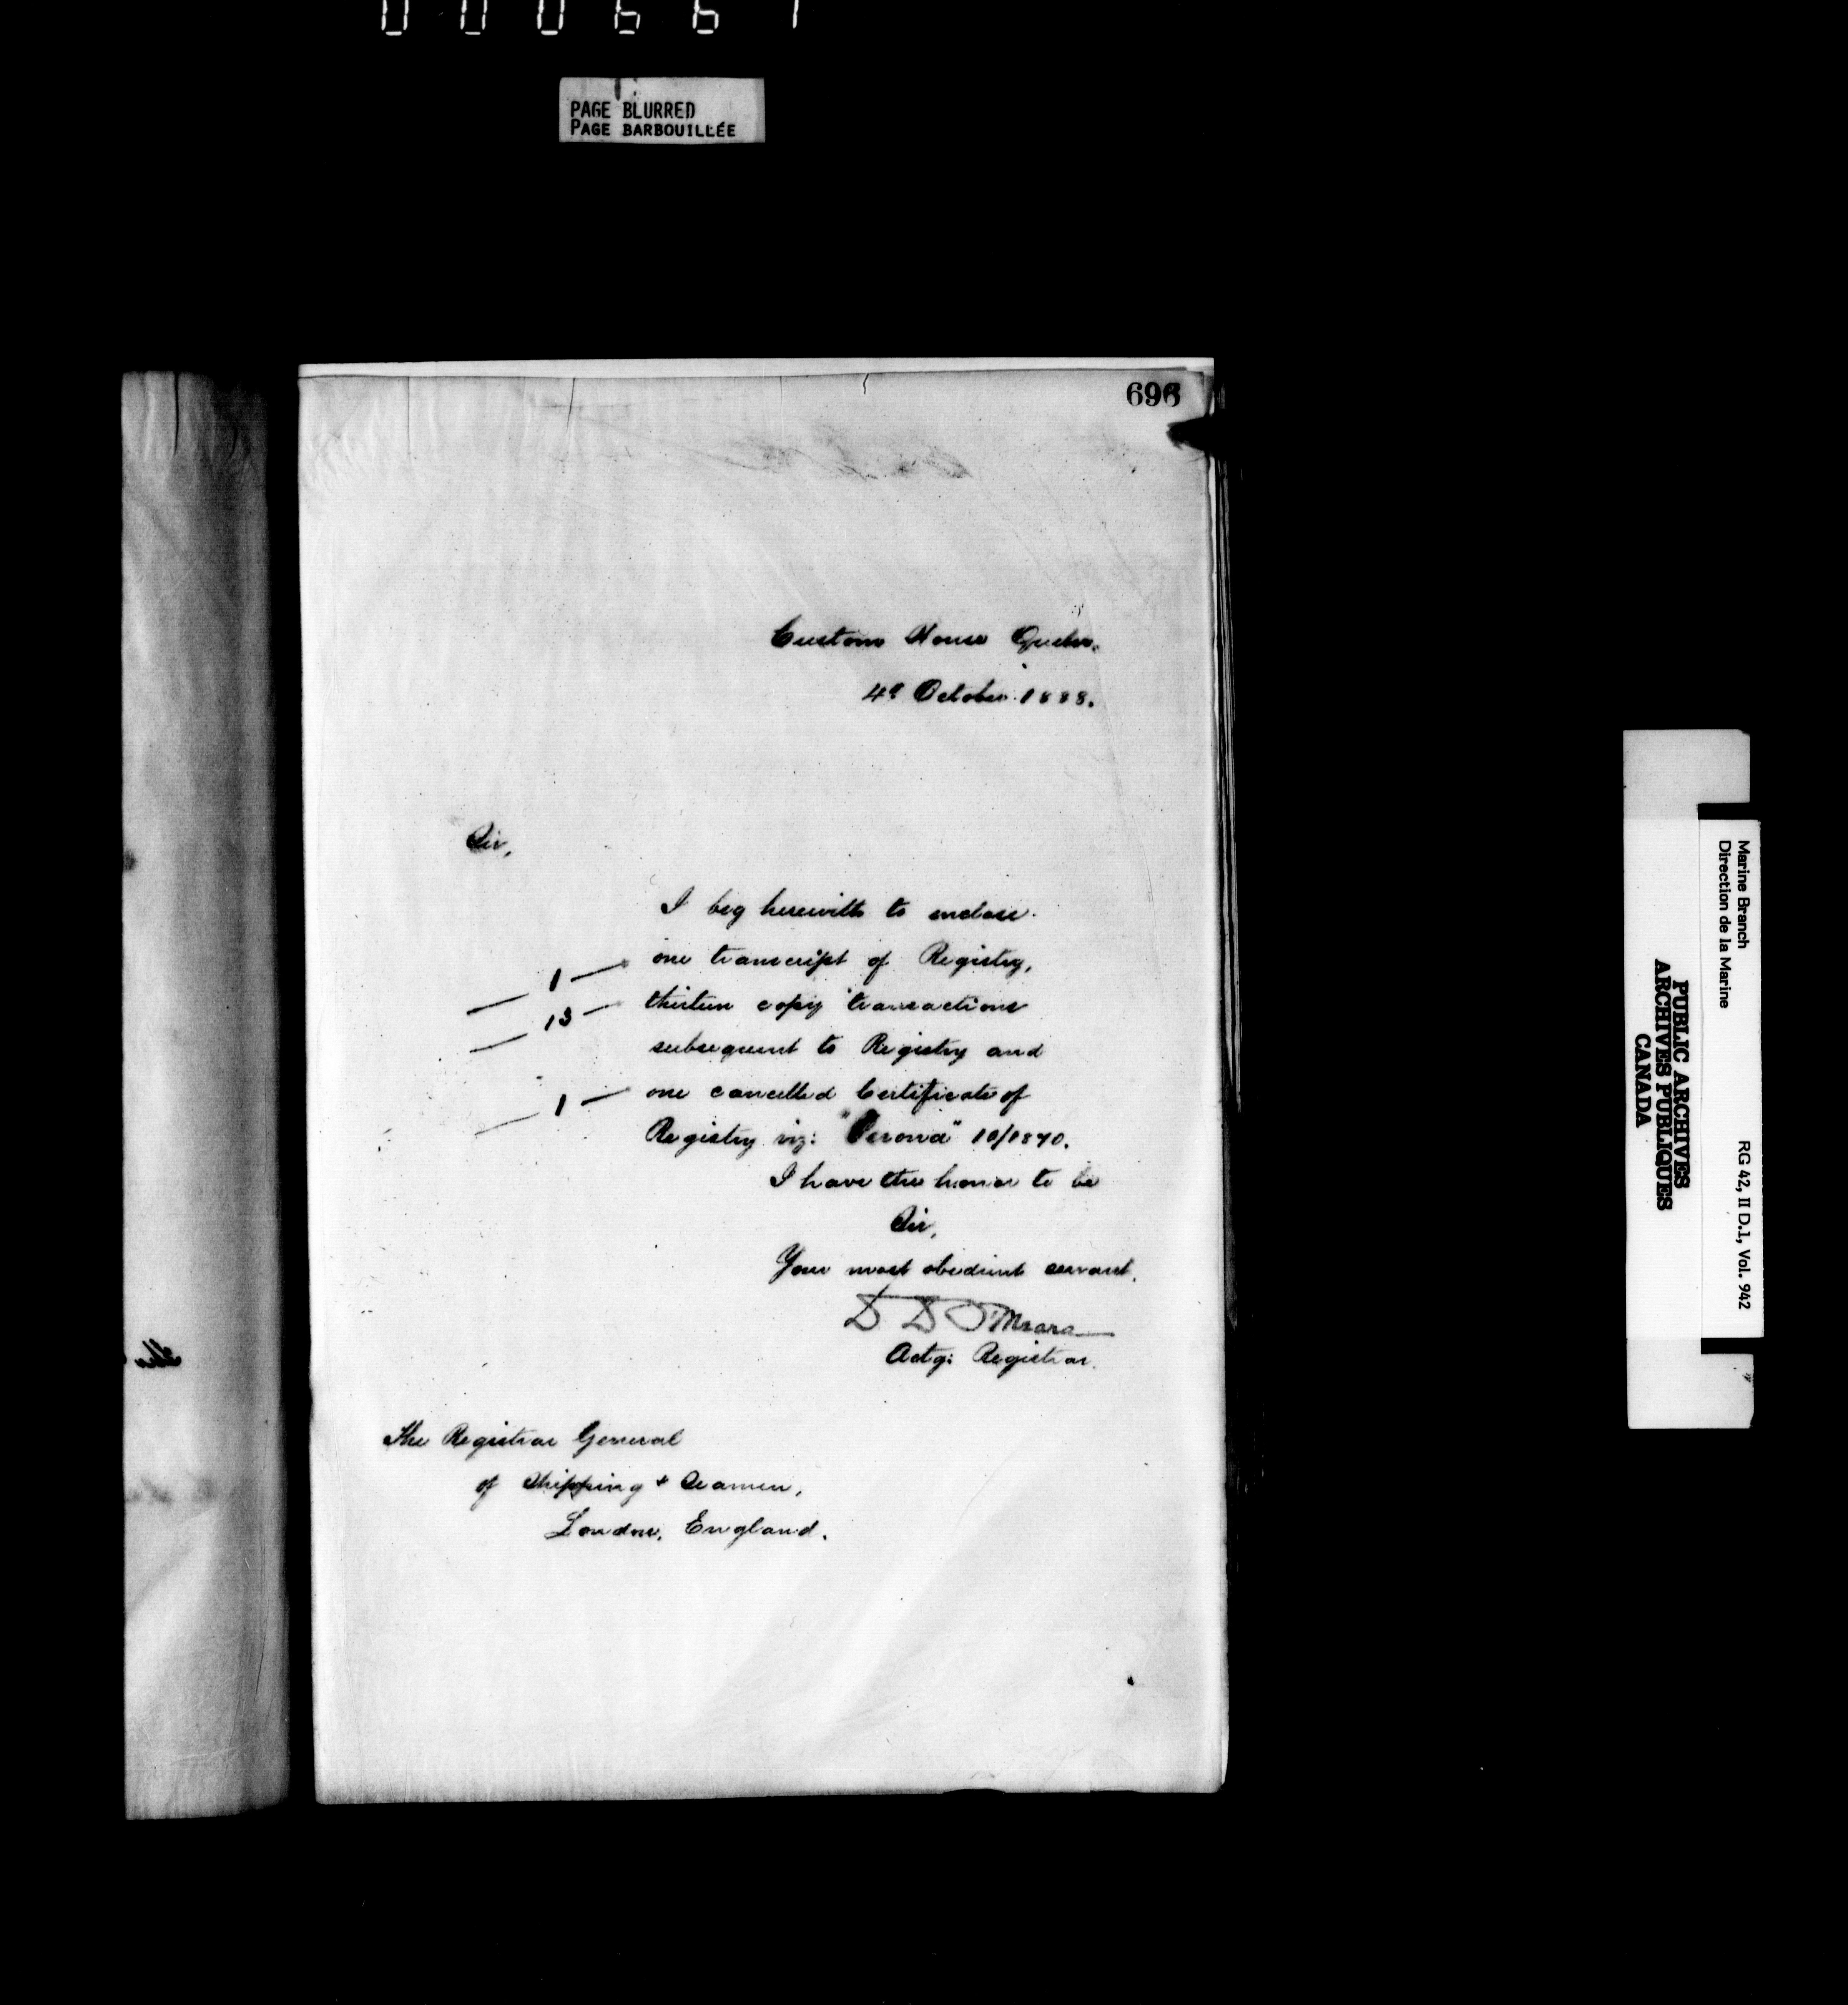 000661
PAGE BLURRED
PAGE BARBOUILLÉE
696
Custom House Quebec.
4th October 1888.
Sir,
I beg herewith to enclose
1 — one transcript of Registry,
13 — thirteen copy transactions
subsequent to Registry and
1 — one cancelled Certificate of
Registry viz: "Verona" 10/1870.
I have the honor to be
Sir,
Your most obedient servant.
D D O'Meara
Actg: Registrar.
The Registrar General
of Shipping & Seamen,
London, England.
The
Marine Branch
Direction de la Marine
RG 42, II D.1, Vol. 942
PUBLIC ARCHIVES
ARCHIVES PUBLIQUES
CANADA